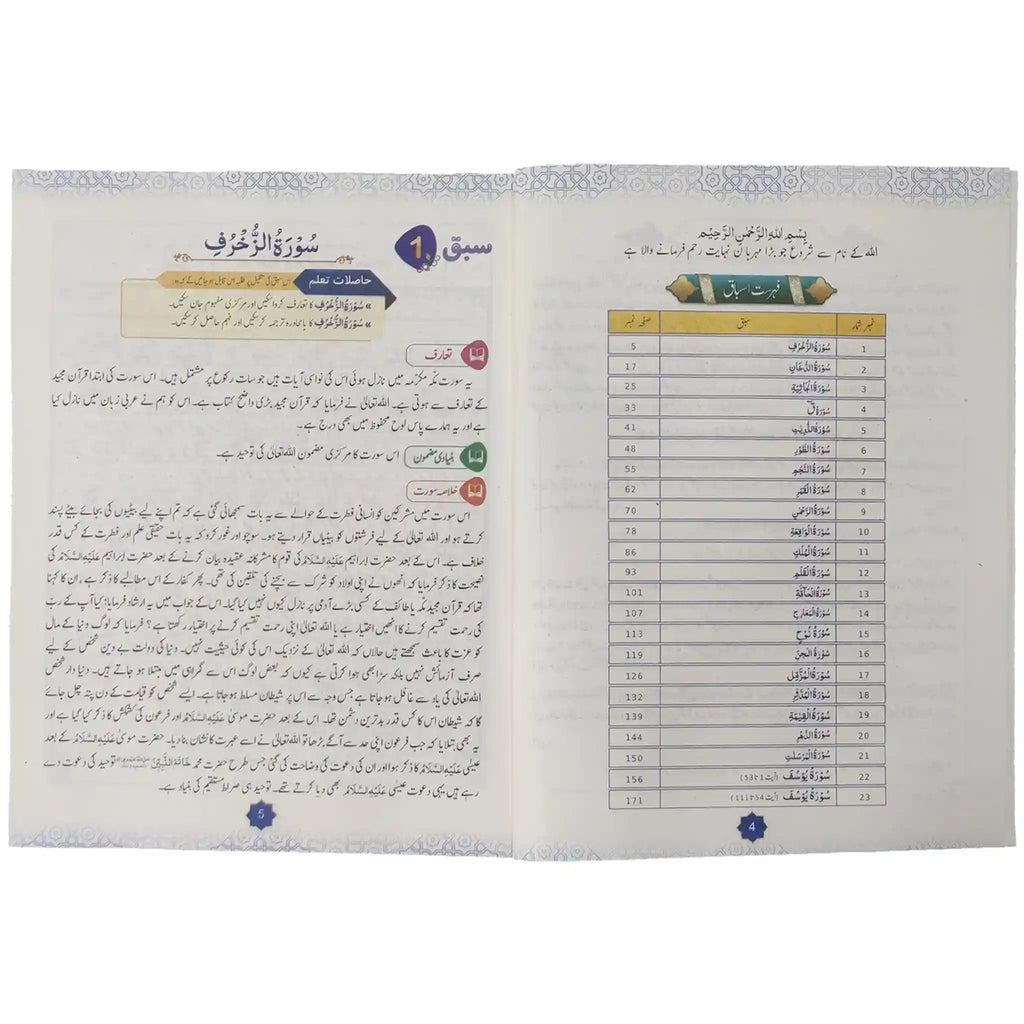 بِسْمِ اللهِ الرَّحْمٰنِ الرَّحِيْمِ
اللہ کے نام سے شروع جو بڑا مہربان نہایت رحم فرمانے والا ہے
فہرست اسباق
نمبر شمار سبق صفحہ نمبر
1 سُوْرَةُ الزُّخْرُفِ 5
2 سُوْرَةُ الدُّخَانِ 17
3 سُوْرَةُ الْجَاثِيَةِ 25
4 سُوْرَةُ قٓ 33
5 سُوْرَةُ الذّٰرِيٰتِ 41
6 سُوْرَةُ الطُّوْرِ 48
7 سُوْرَةُ النَّجْمِ 55
8 سُوْرَةُ الْقَمَرِ 62
9 سُوْرَةُ الرَّحْمٰنِ 70
10 سُوْرَةُ الْوَاقِعَةِ 78
11 سُوْرَةُ الْمُلْكِ 86
12 سُوْرَةُ الْقَلَمِ 93
13 سُوْرَةُ الْحَآقَّةِ 101
14 سُوْرَةُ الْمَعَارِجِ 107
15 سُوْرَةُ نُوْحٍ 113
16 سُوْرَةُ الْجِنِّ 119
17 سُوْرَةُ الْمُزَّمِّلِ 126
18 سُوْرَةُ الْمُدَّثِّرِ 132
19 سُوْرَةُ الْقِيٰمَةِ 139
20 سُوْرَةُ الدَّهْرِ 144
21 سُوْرَةُ الْمُرْسَلٰتِ 150
22 سُوْرَةُ يُوْسُفَ (آیت 1تا53) 156
23 سُوْرَةُ يُوْسُفَ (آیت 54تا111) 171
4
سبق 1
سُوْرَةُ الزُّخْرُفِ
حاصلاتِ تعلم اس سبق کی تکمیل پر طلبہ اس قابل ہو جائیں گے کہ وہ:
» سُوْرَةُ الزُّخْرُفِ کا تعارف کروا سکیں اور مرکزی مفہوم جان سکیں۔
» سُوْرَةُ الزُّخْرُفِ کا بامحاورہ ترجمہ کر سکیں اور فہم حاصل کر سکیں۔
تعارف
یہ سورت مکّہ مکرّمہ میں نازل ہوئی اس کی نواسی آیات ہیں جو سات رکوع پر مشتمل ہیں۔ اس سورت کی ابتدا قرآن مجید
کے تعارف سے ہوتی ہے۔ اللہ تعالیٰ نے فرمایا کہ قرآن مجید بڑی واضح کتاب ہے۔ اس کو ہم نے عربی زبان میں نازل کیا
ہے اور یہ ہمارے پاس لوح محفوظ میں بھی درج ہے۔
بنیادی مضمون اس سورت کا مرکزی مضمون اللہ تعالیٰ کی توحید ہے۔
خلاصہ سورت
اس سورت میں مشرکین کو انسانی فطرت کے حوالے سے یہ بات سمجھائی گئی ہے کہ تم اپنے لیے بیٹیوں کی بجائے بیٹے پسند
کرتے ہو اور اللہ تعالیٰ کے لیے فرشتوں کو بیٹیاں قرار دیتے ہو۔ سوچو اور غور کرو کہ یہ بات حقیقی علم اور فطرت کے کس قدر
خلاف ہے۔ اس کے بعد حضرت ابراہیم عَلَيْهِ السَّلَامُ کی قوم کا مشرکانہ عقیدہ بیان کرنے کے بعد حضرت ابراہیم عَلَيْهِ السَّلَامُ کی
نصیحت کا ذکر فرمایا کہ انھوں نے اپنی اولاد کو شرک سے بچنے کی تلقین کی تھی۔ پھر کفار کے اس مطالبے کا ذکر ہے، ان کا کہنا
تھا کہ قرآن مجید مکّہ یا طائف کے کسی بڑے آدمی پر نازل کیوں نہیں کیا گیا۔ اس کے جواب میں یہ ارشاد فرمایا: کیا آپ کے ربّ
کی رحمت تقسیم کرنے کا انھیں اختیار ہے یا اللہ تعالیٰ اپنی رحمت تقسیم کرنے پر اختیار رکھتا ہے؟ فرمایا کہ لوگ دنیا کے مال
کو عزت کا باعث سمجھتے ہیں حالاں کہ اللہ تعالیٰ کے نزدیک اس کی کوئی حیثیت نہیں۔ دنیا کی دولت بے دین شخص کے لیے
صرف آزمائش نہیں بلکہ سزا بھی ہوا کرتی ہے کیوں کہ بعض لوگ اس سے گمراہی میں مبتلا ہو جاتے ہیں۔ دنیا دار شخص
اللہ تعالیٰ کی یاد سے غافل ہو جاتا ہے جس وجہ سے اس پر شیطان مسلط ہو جاتا ہے۔ ایسے شخص کو قیامت کے دن پتہ چل جائے
گا کہ شیطان اس کا کس قدر بدترین دشمن تھا۔ اس کے بعد حضرت موسیٰ عَلَيْهِ السَّلَامُ اور فرعون کی کشمکش کا ذکر کیا گیا ہے اور
یہ بھی بتلایا کہ جب فرعون اپنی حد سے آگے بڑھا تو اللہ تعالیٰ نے اسے عبرت کا نشان بنا دیا۔ حضرت موسیٰ عَلَيْهِ السَّلَامُ کے بعد
عیسیٰ عَلَيْهِ السَّلَامُ کا ذکر ہوا اور ان کی دعوت کی وضاحت کی گئی جس طرح حضرت محمد خَاتَمُ النَّبِيّٖنَ توحید کی دعوت دے
رہے ہیں یہی دعوت عیسیٰ عَلَيْهِ السَّلَامُ بھی دیا کرتے تھے۔ توحید ہی صراط مستقیم کی بنیاد ہے۔
5